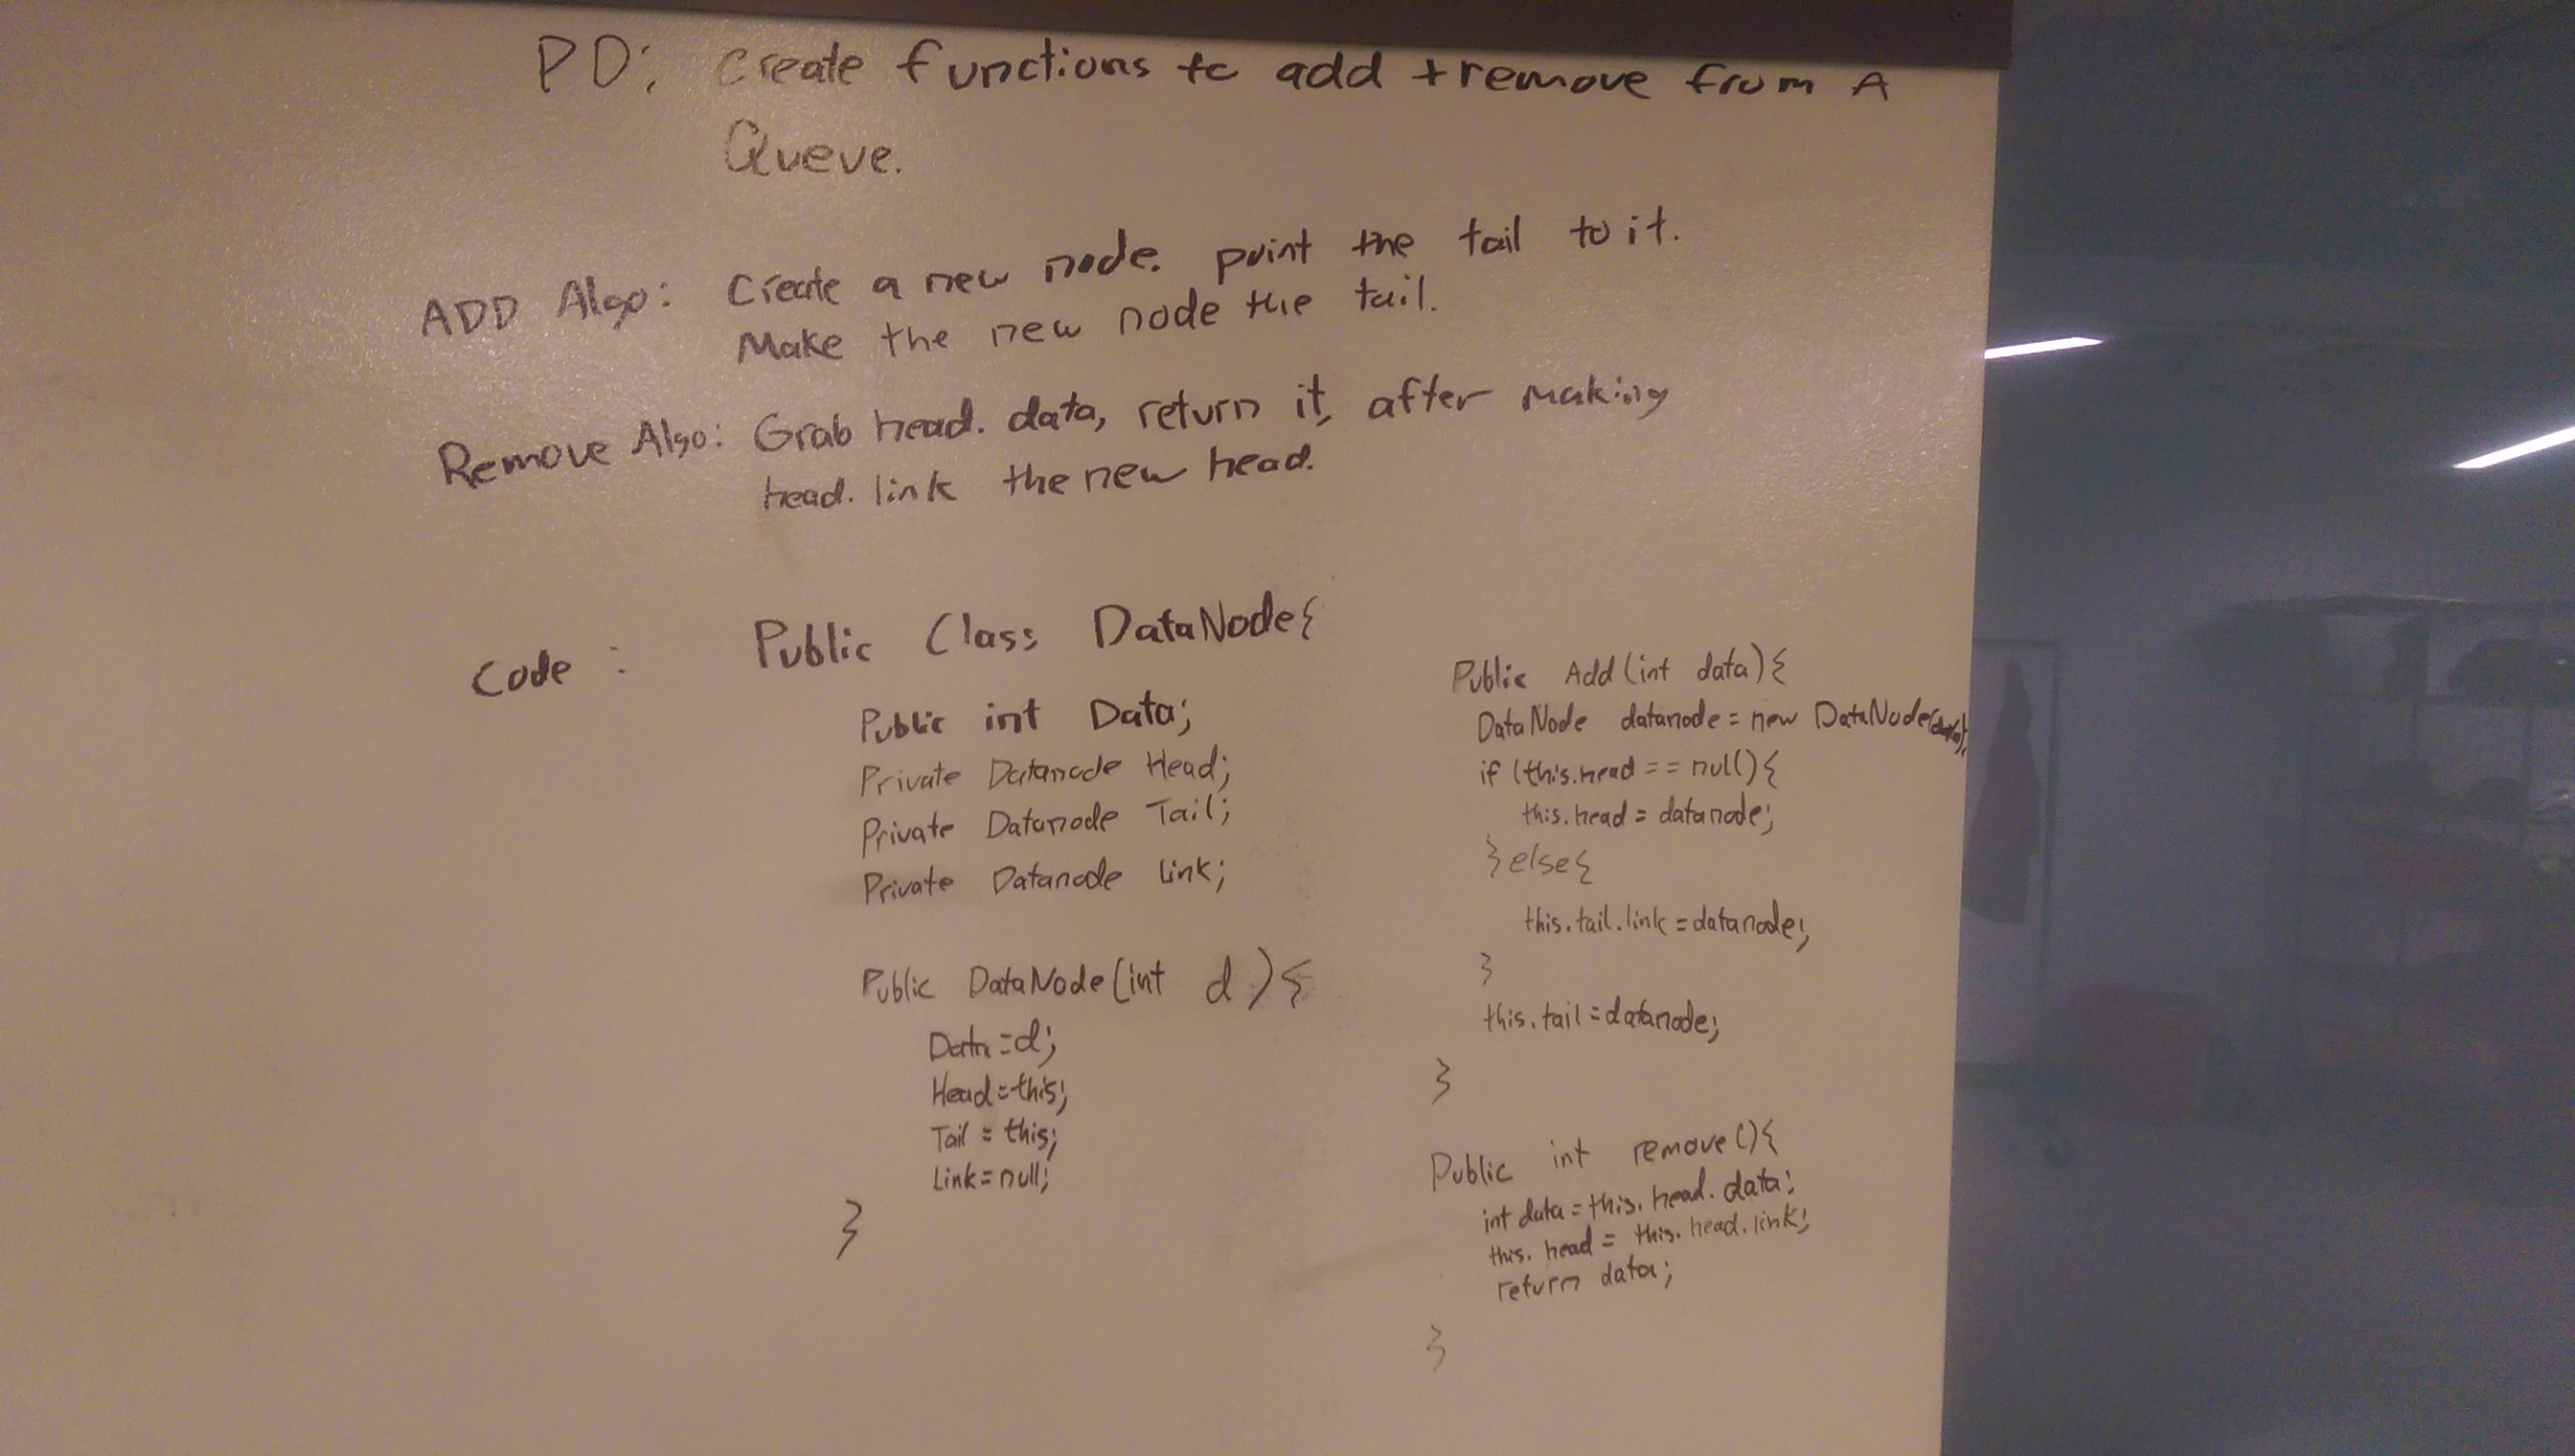 PD: Create functions to add + remove from A
Queue.
ADD Algo: Create a new node. point the tail to it.
Make the new node the tail.
Remove Algo: Grab head. data, return it, after making
head. link the new head.
Code : Public Class DataNode{
Public int Data;
Private Datanode Head;
Private Datanode Tail;
Private Datanode Link;
Public DataNode(int d){
Data=d;
Head=this;
Tail = this;
Link=null;
}
Public Add(int data){
DataNode datanode = new DataNode(data);
if (this.head == null){
this.head = datanode;
}else{
this.tail.link = datanode;
}
this.tail = datanode;
}
Public int remove(){
int data = this. head. data;
this. head = this. head. link;
return data;
}